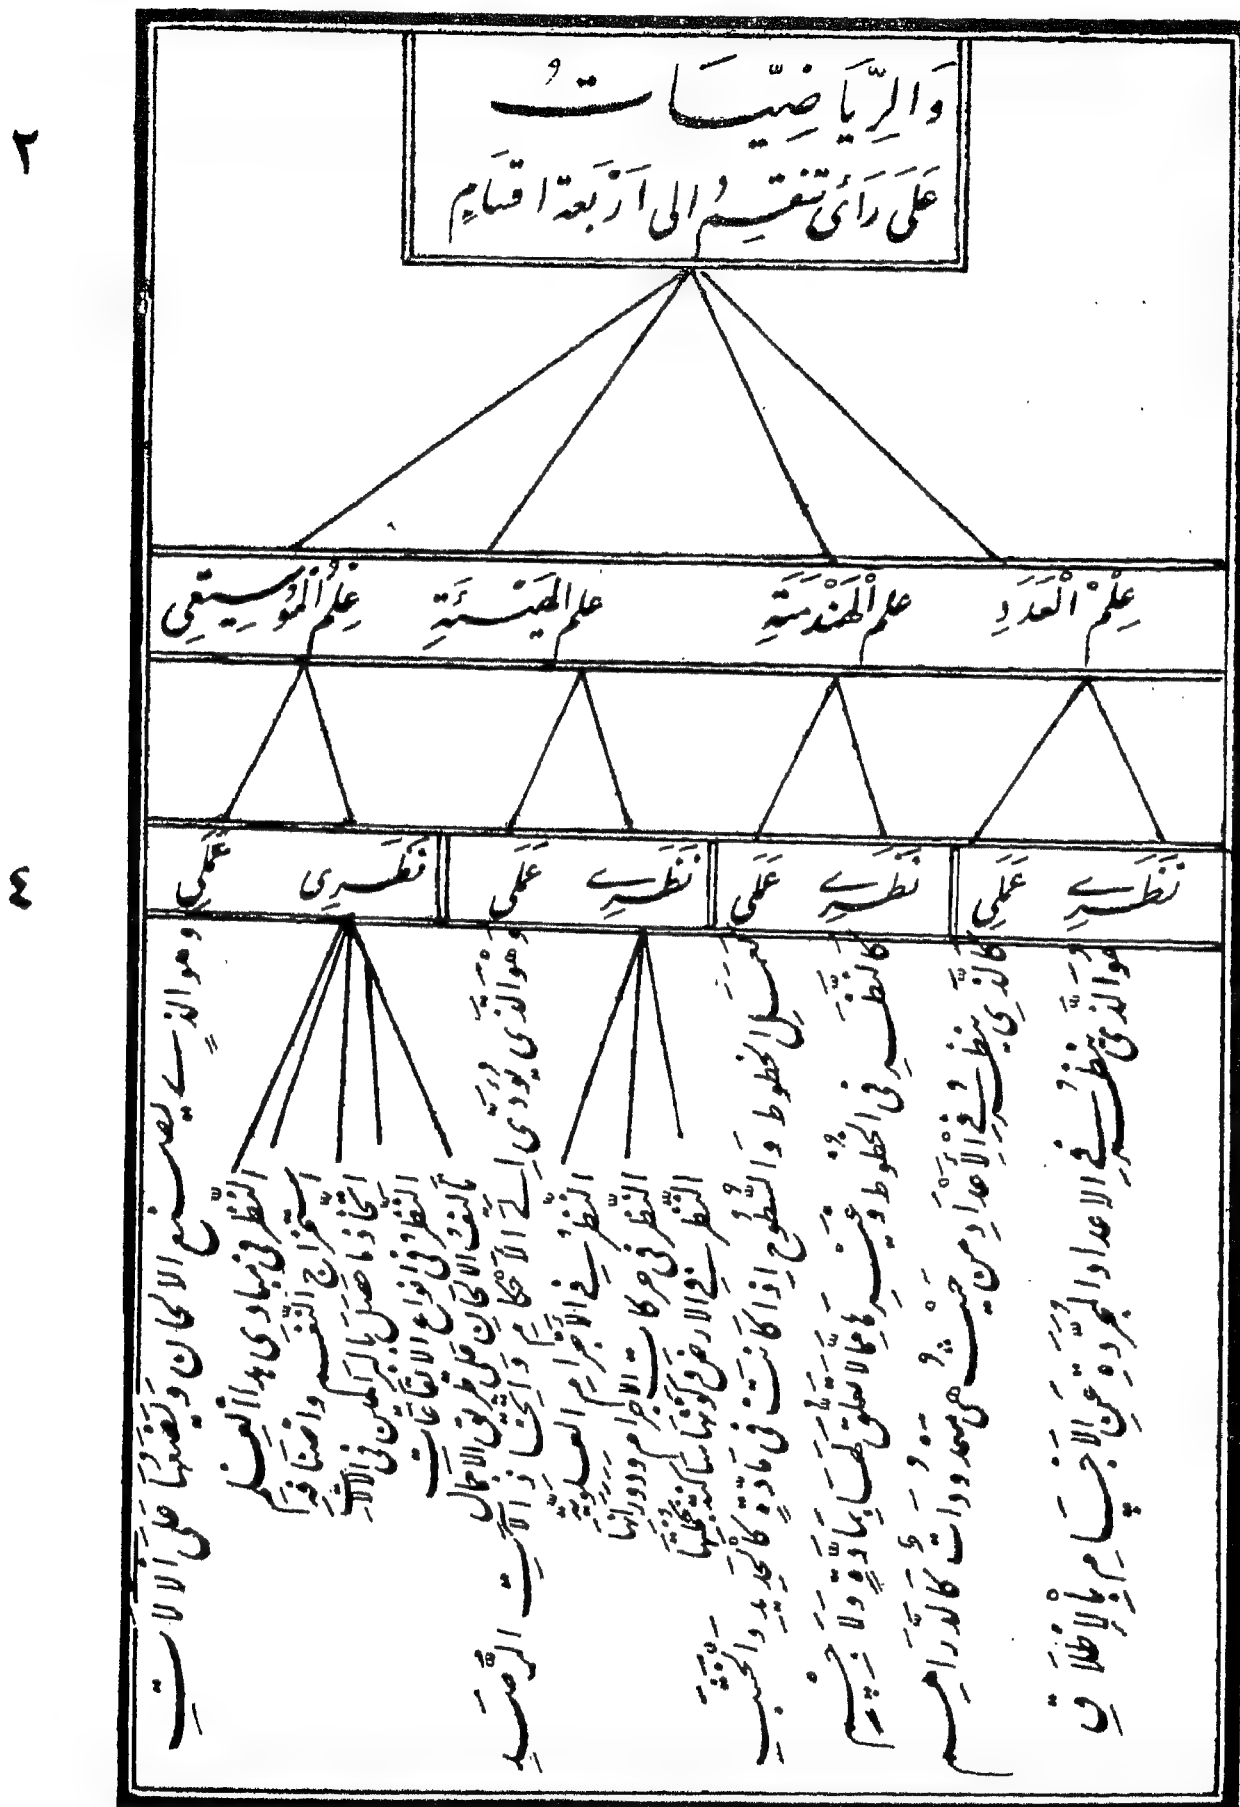 وَالرِّيَاضِيَّاتُ
عَلَى رَأىٍ تنقسِمُ الى اَرْبَعة اقسَامٍ
٢
عِلْمُ الْعَدَدِ
علمُ الْهَنْدَسَةِ
علم الهَيْئَةِ
عِلمُ الْمُوْسِيْقِي
٤
نَظَرِي
عَمَلِي
نَظَرِي
عَمَلِي
نَظَرِي
عَمَلِي
نَظَرِي
عَمَلِي
هوَ الَّذى يَنظُر فِي الاعداد المجرَّدةِ عَنِ الاَجْسَامِ بِالاِطْلَاقِ
كَالَّذِي ينظرُ فِي الْاَعْدَادِ مِن حَيْثُ هى معدودات كالدَّرَاهِمِ
كَالنَّظَرِ فى الخُطُوطِ وَغَيْرِهَا مما لا تعلق لَهَا بِمَادَّةٍ وَلَا
كعَمَلِ الخطوط وَالسُّطُوحِ اِذَا كَانَتْ فى مَادَّةٍ كَالْحَدِيدِ والخَشَبِ
النَّظَر فِي الارض وَكونها سَاكنة
النَّظَر فى حركات الاجرام ودورانها
النَّظَر فِي الاَجْرَامِ العلوية
وَهُوَ الَّذى يُؤَدِّى اِلَى الاَحْكَامِ وَاتخاذ آلات الرَّصَدِ
تأليف الالحَان على طريق الاجمال
النَّظَر فى انواع الايقَاعَات
استخراج النغم واصنَافه
النَّظَر فى مبادى هذا العلم
وهو الذِي يصنع الالحان وَيَضَعُهَا عَلَى الالات